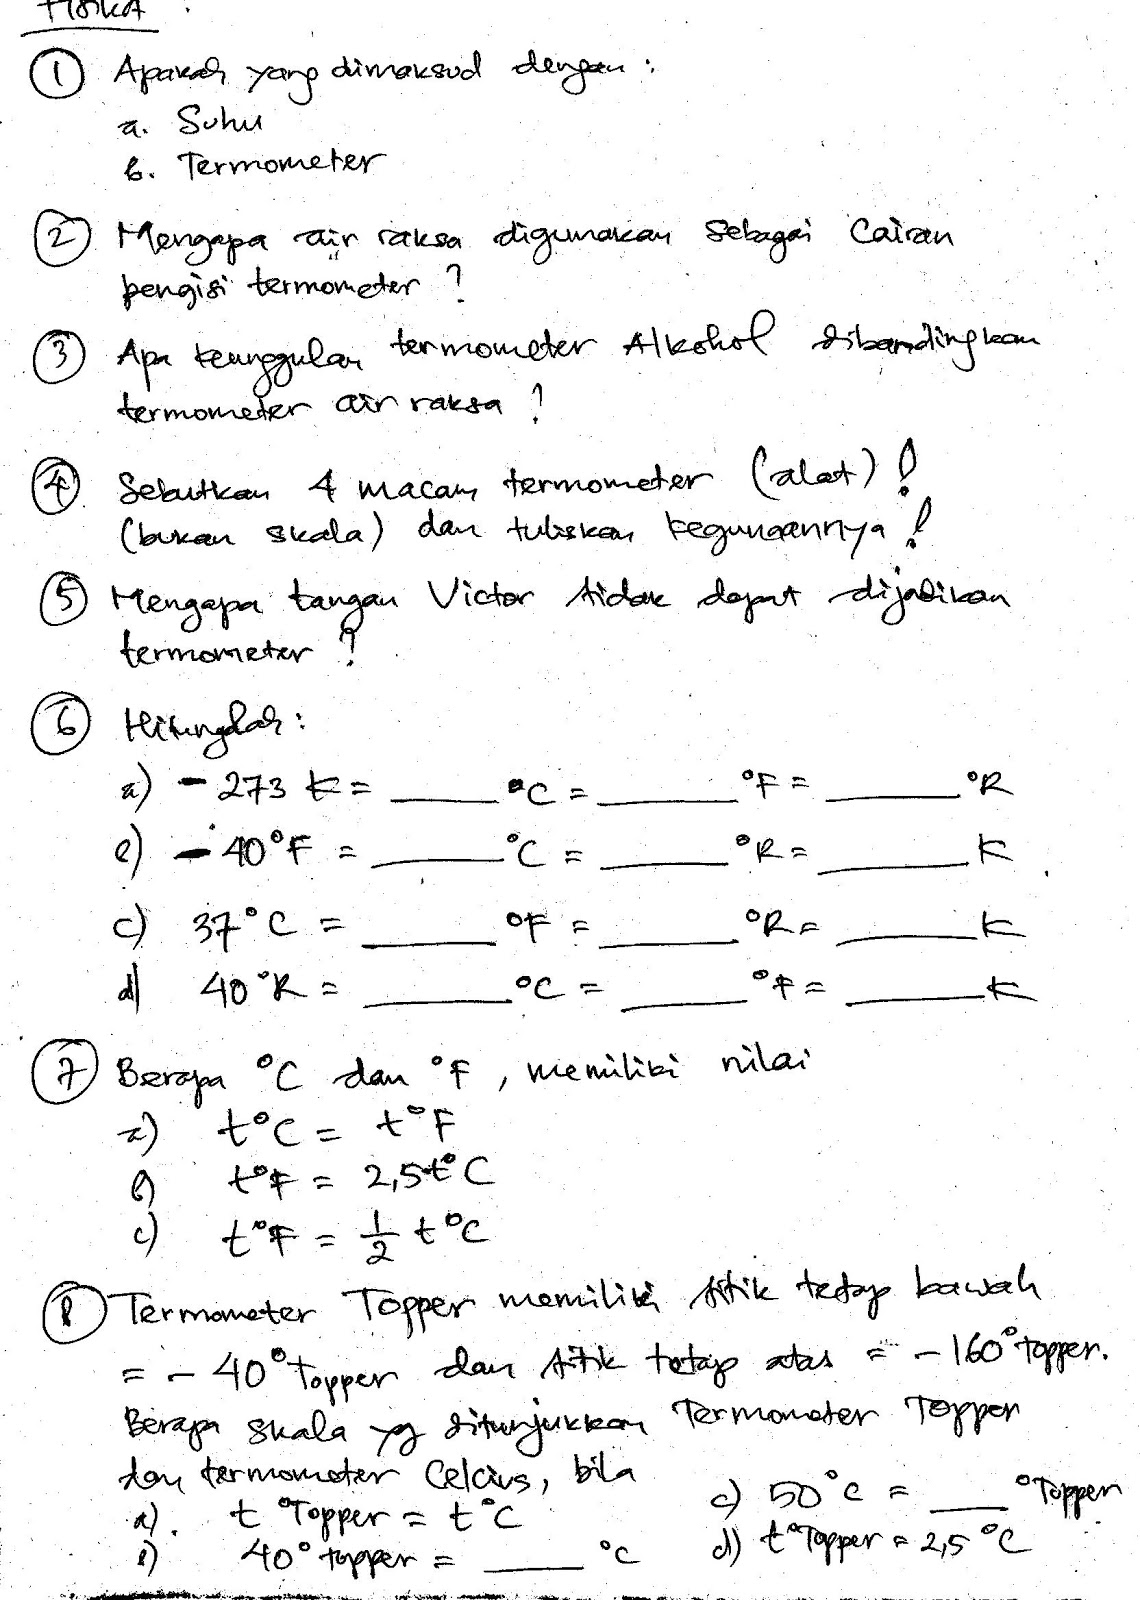 Fisika :
1 Apakah yang dimaksud dengan :
a. Suhu
b. Termometer
2 Mengapa air raksa digunakan sebagai cairan
pengisi termometer ?
3 Apa keunggulan termometer Alkohol dibandingkan
termometer air raksa ?
4 Sebutkan 4 macam termometer (alat) !
(bukan skala) dan tuliskan kegunaannya !
5 Mengapa tangan Victor tidak dapat dijadikan
termometer ?
6 Hitunglah :
a) - 273 K = ____ °C = ____ °F = ____ °R
b) - 40°F = ____ °C = ____ °R = ____ K
c) 37°C = ____ °F = ____ °R = ____ K
d) 40°R = ____ °C = ____ °F = ____ K
7 Berapa °C dan °F, memiliki nilai
a) t°C = t°F
b) t°F = 2,5 t°C
c) t°F = 1/2 t°C
8 Termometer Topper memiliki titik tetap bawah
= - 40° Topper dan titik tetap atas = - 160° topper.
Berapa skala yg ditunjukkan Termometer Topper
dan termometer Celcius, bila
a). t °Topper = t°C
b) 40° topper = ____ °C
c) 50°C = ____ °Topper
d) t°Topper = 2,5 °C